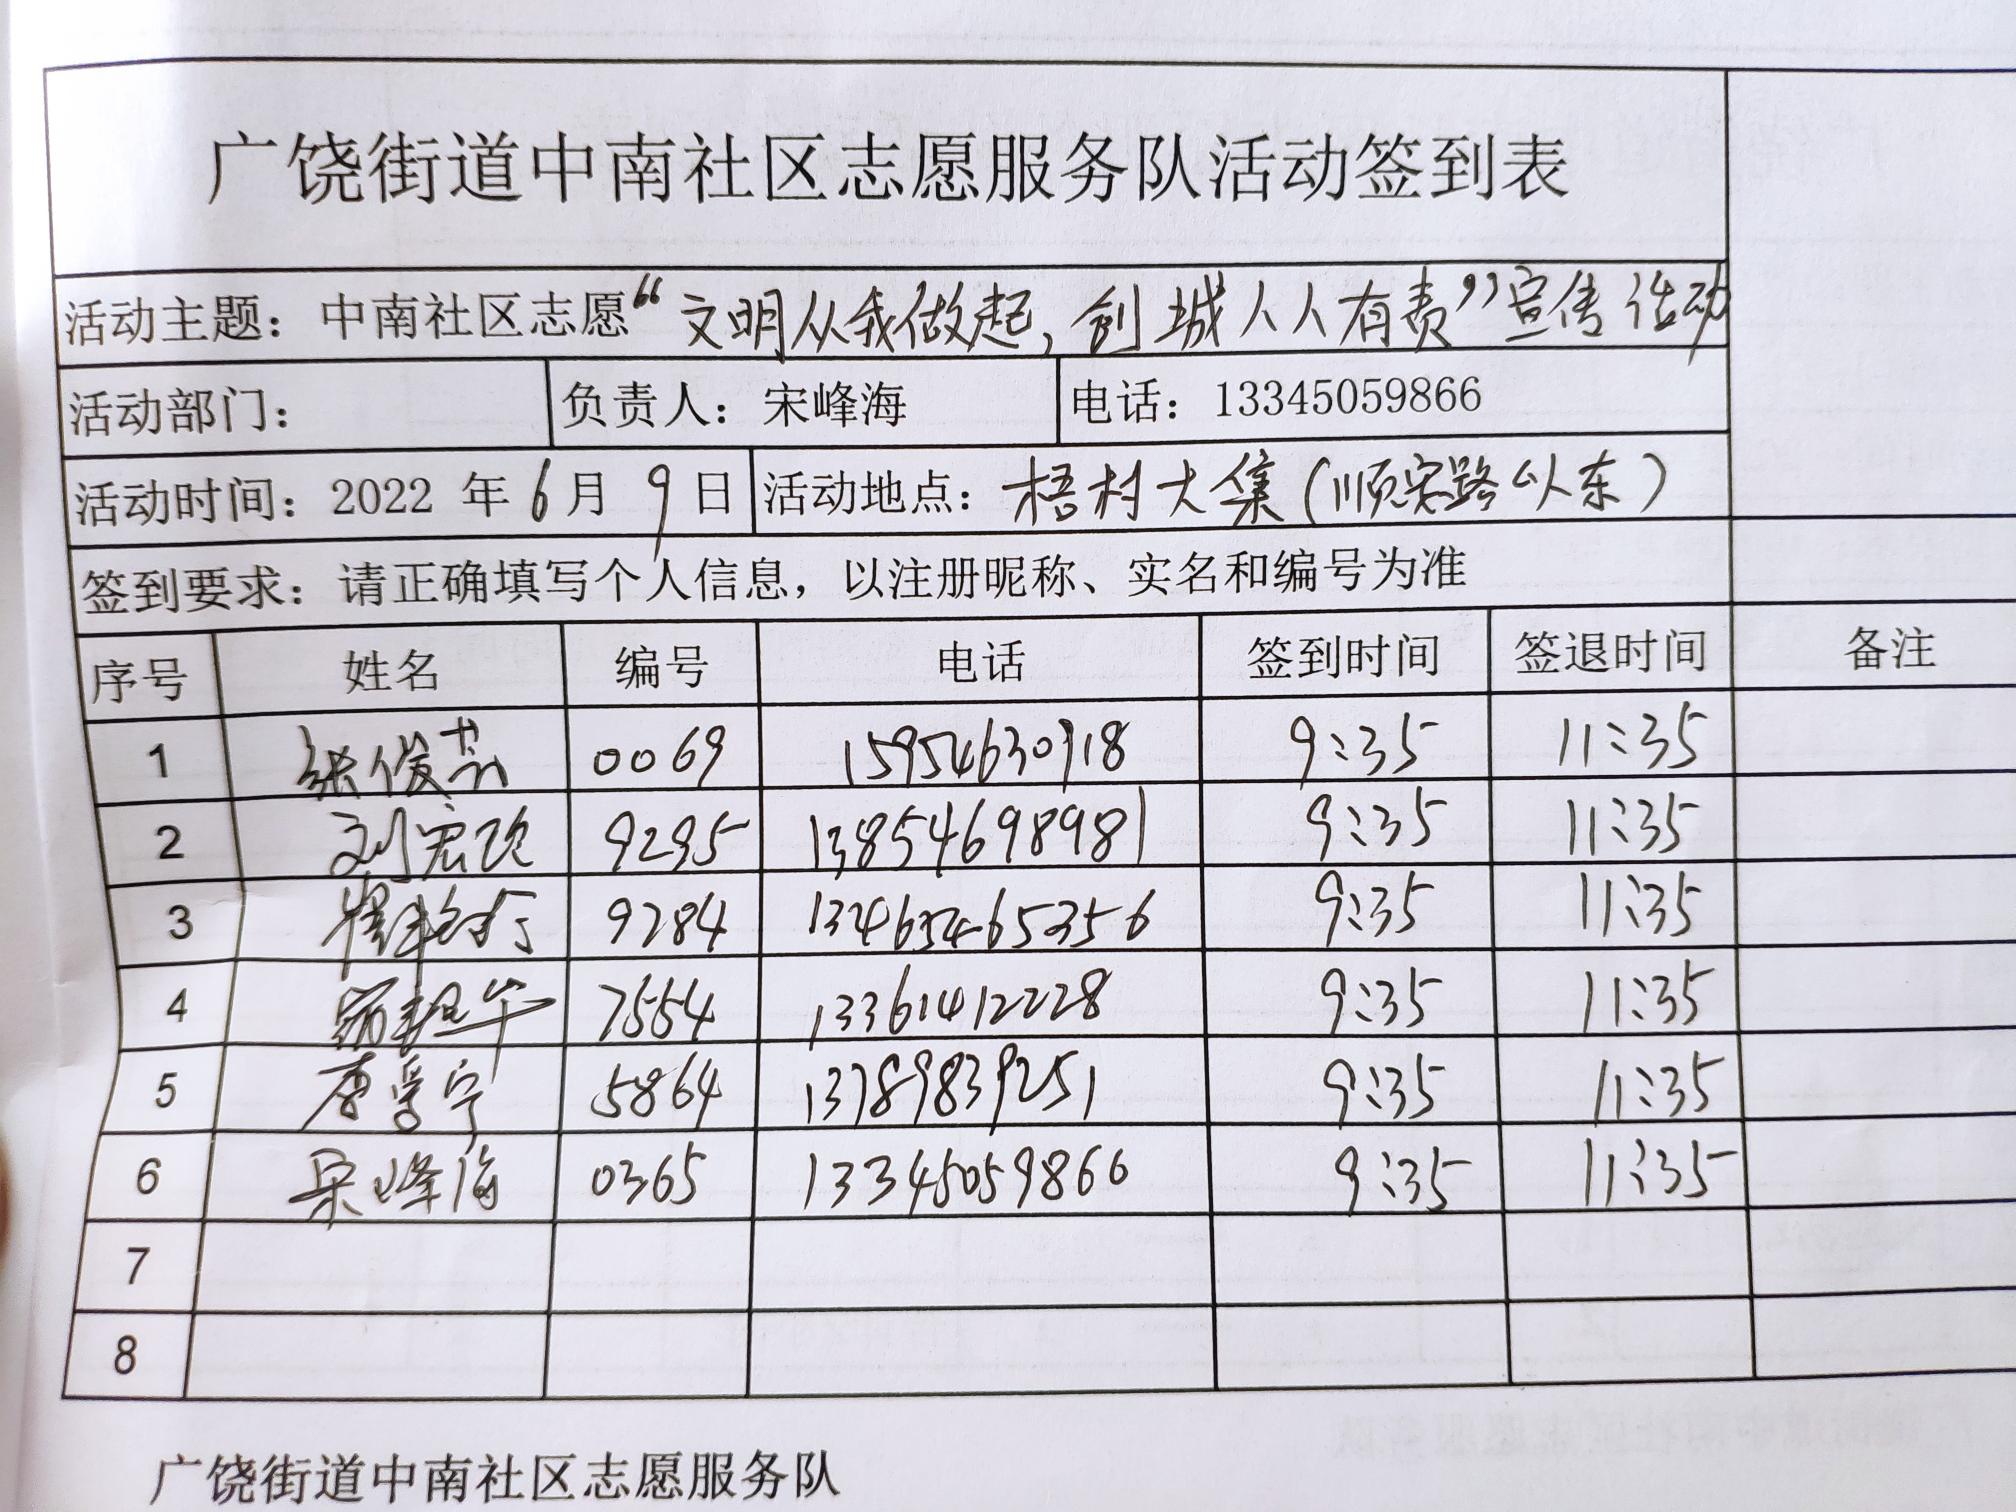 广饶街道中南社区志愿服务队活动签到表
活动主题：中南社区志愿“文明从我做起，创城人人有责”宣传活动
活动部门： 负责人：宋峰海 电话：13345059866
活动时间：2022 年 6 月 9 日 活动地点：梧村大集（顺安路以东）
签到要求：请正确填写个人信息，以注册昵称、实名和编号为准
序号 姓名 编号 电话 签到时间 签退时间 备注
1 张俊芬 0069 15954630918 9:35 11:35
2 刘宏欣 9295 13854698981 9:35 11:35
3 9284 13463465356 9:35 11:35
4 7554 13361412228 9:35 11:35
5 李学宁 5864 13789839251 9:35 11:35
6 宋峰海 0365 13345059866 9:35 11:35
7
8
广饶街道中南社区志愿服务队